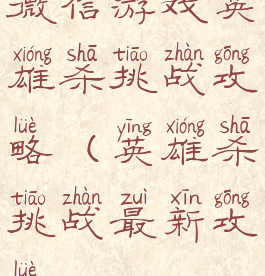 微信游戏英
xióng shā tiāo zhàn gōng
雄杀挑战攻
lüè yīng xióng shā
略（英雄杀
tiāo zhàn zuì xīn gōng
挑战最新攻
lüè